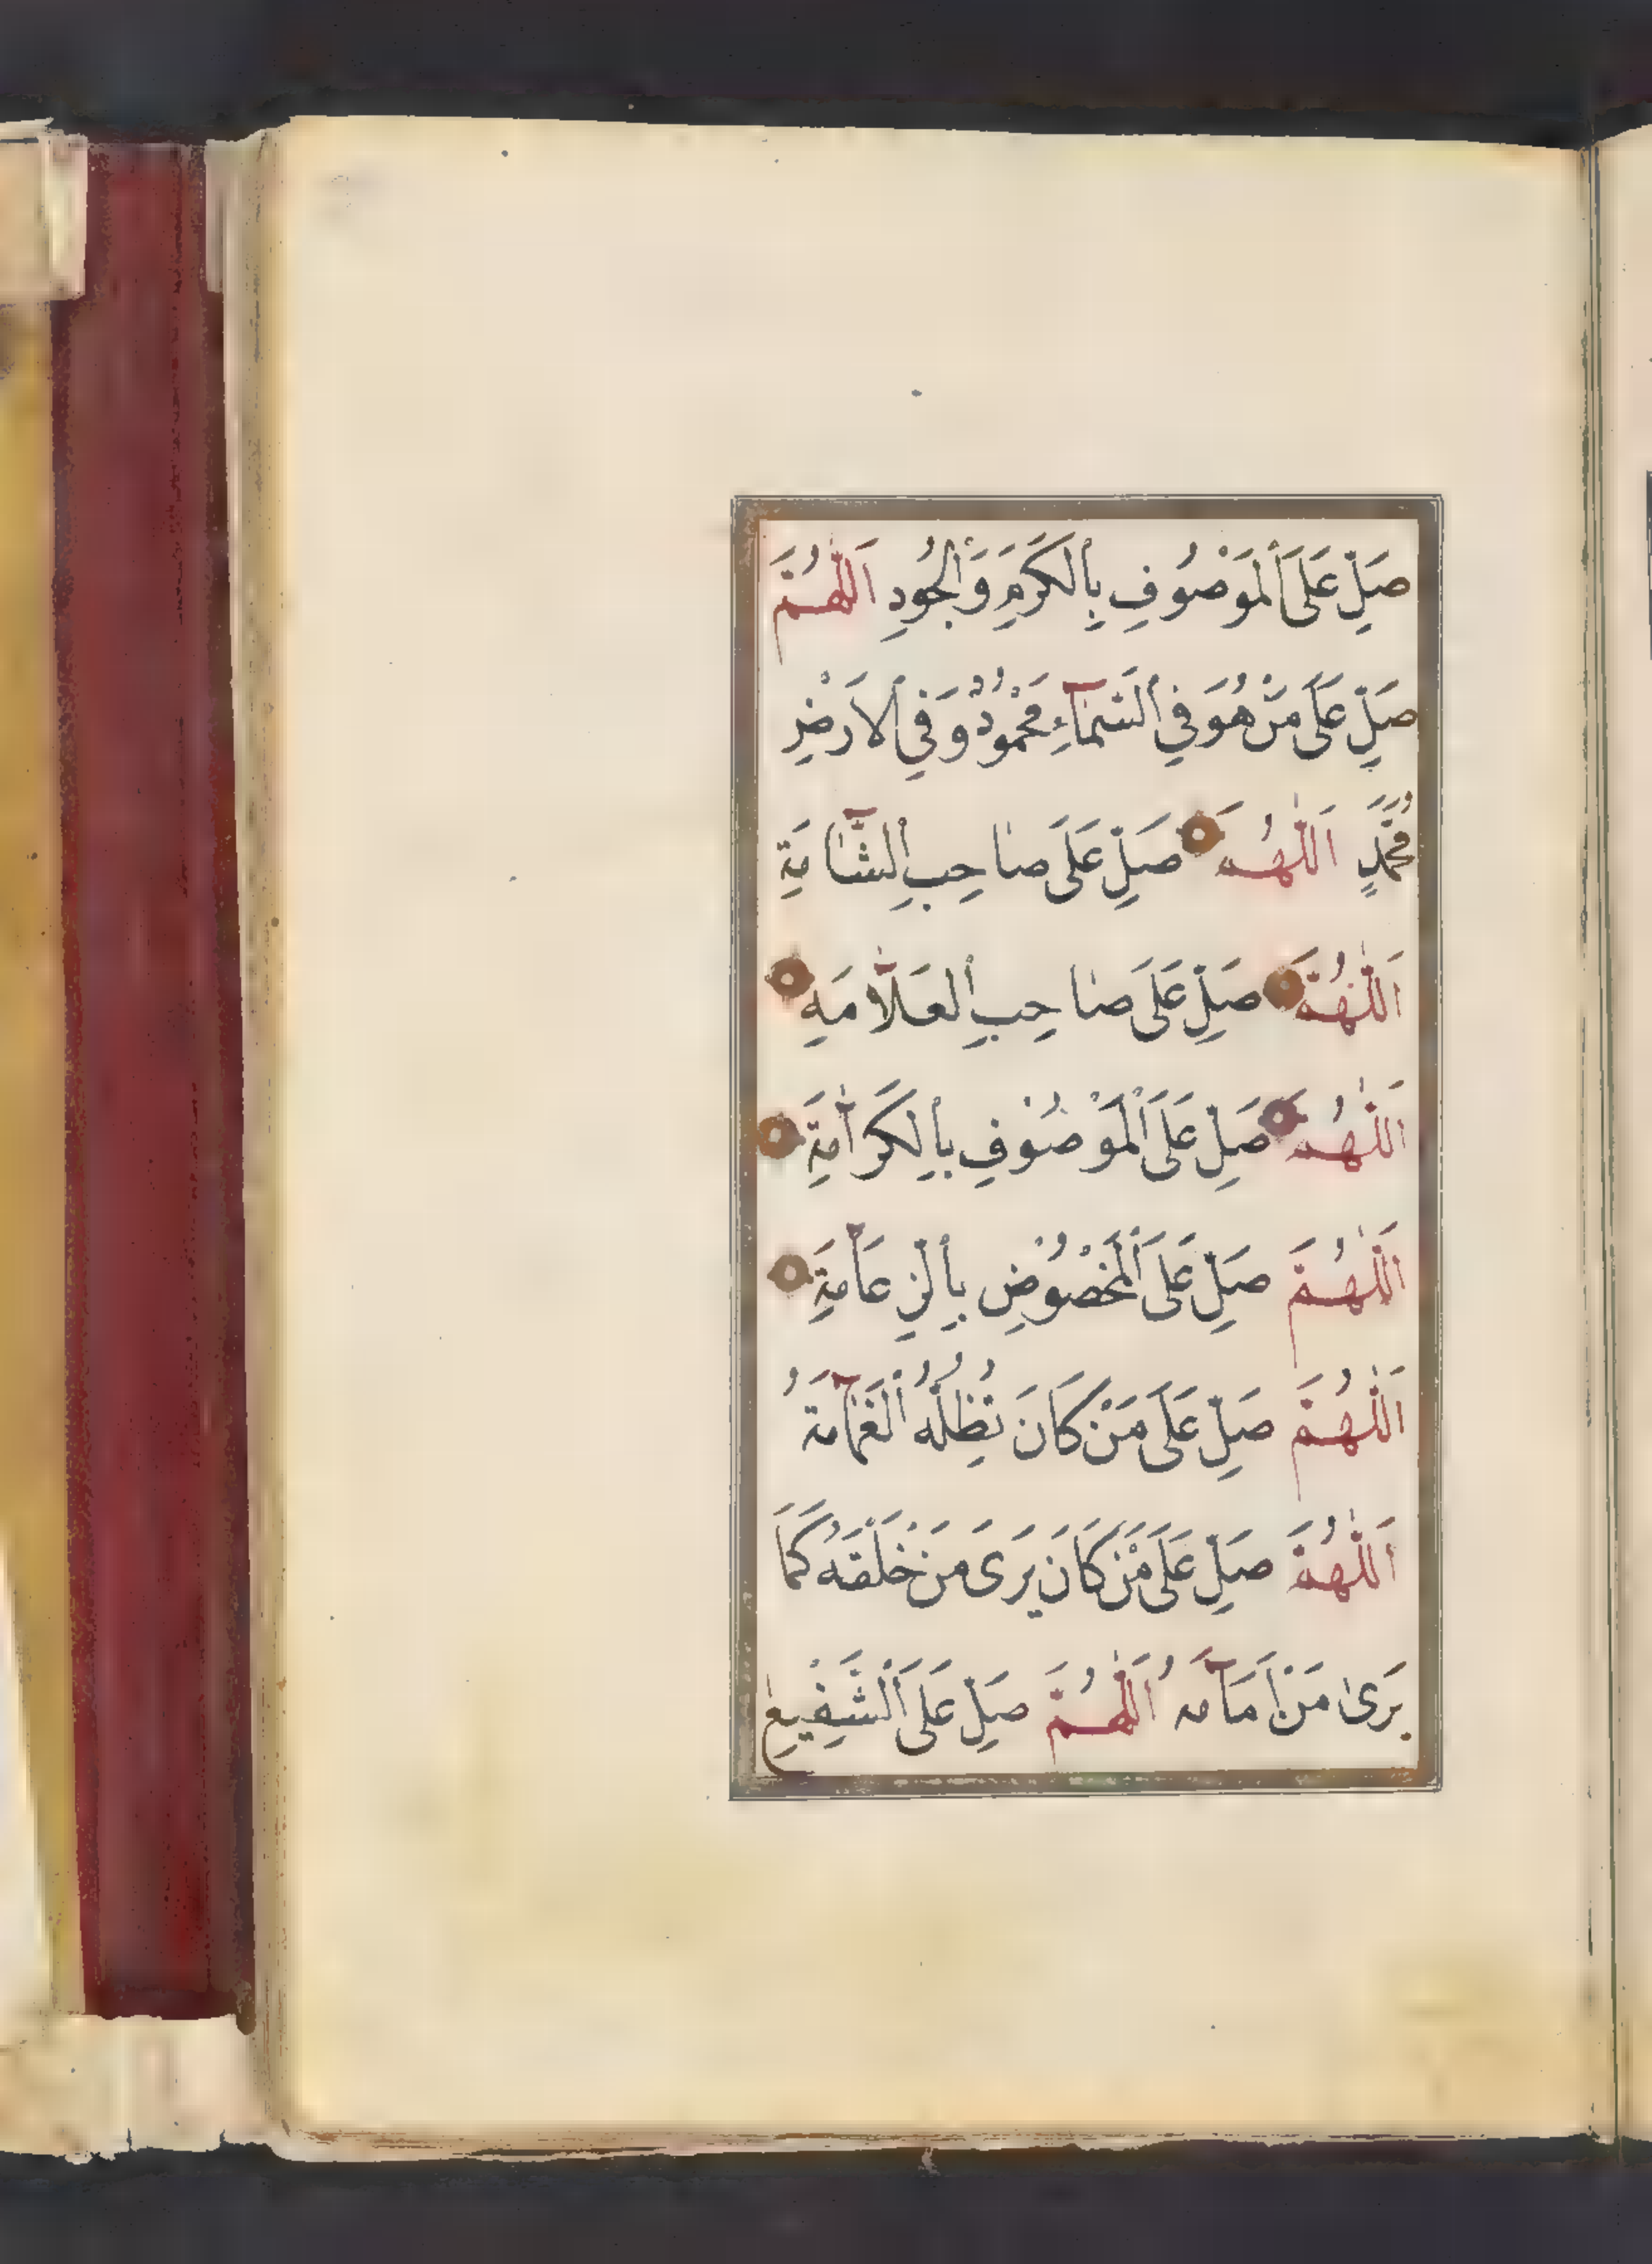 صَلِّ عَلَى الْمَوْصُوفِ بِالْكَرَمِ وَالْجُودِ اَللّٰهُمَّ
صَلِّ عَلَى مَنْ هُوَ فِي السَّمَآءِ مَحْمُودٌ وَفِي الْاَرْضِ
مُحَمَّدٍ اَللّٰهُمَّ صَلِّ عَلَى صَاحِبِ الشَّامَةِ
اَللّٰهُمَّ صَلِّ عَلَى صَاحِبِ الْعَلَّامَةِ
اَللّٰهُمَّ صَلِّ عَلَى الْمَوْصُوفِ بِالْكَرَامَةِ
اَللّٰهُمَّ صَلِّ عَلَى الْمَخْصُوصِ بِالزِّعَامَةِ
اَللّٰهُمَّ صَلِّ عَلَى مَنْ كَانَ تُظِلُّهُ الْغَمَامَةُ
اَللّٰهُمَّ صَلِّ عَلَى مَنْ كَانَ يَرَى مَنْ خَلْفَهُ كَمَا
يَرَى مَنْ اَمَامَهُ اَللّٰهُمَّ صَلِّ عَلَى الشَّفِيعِ